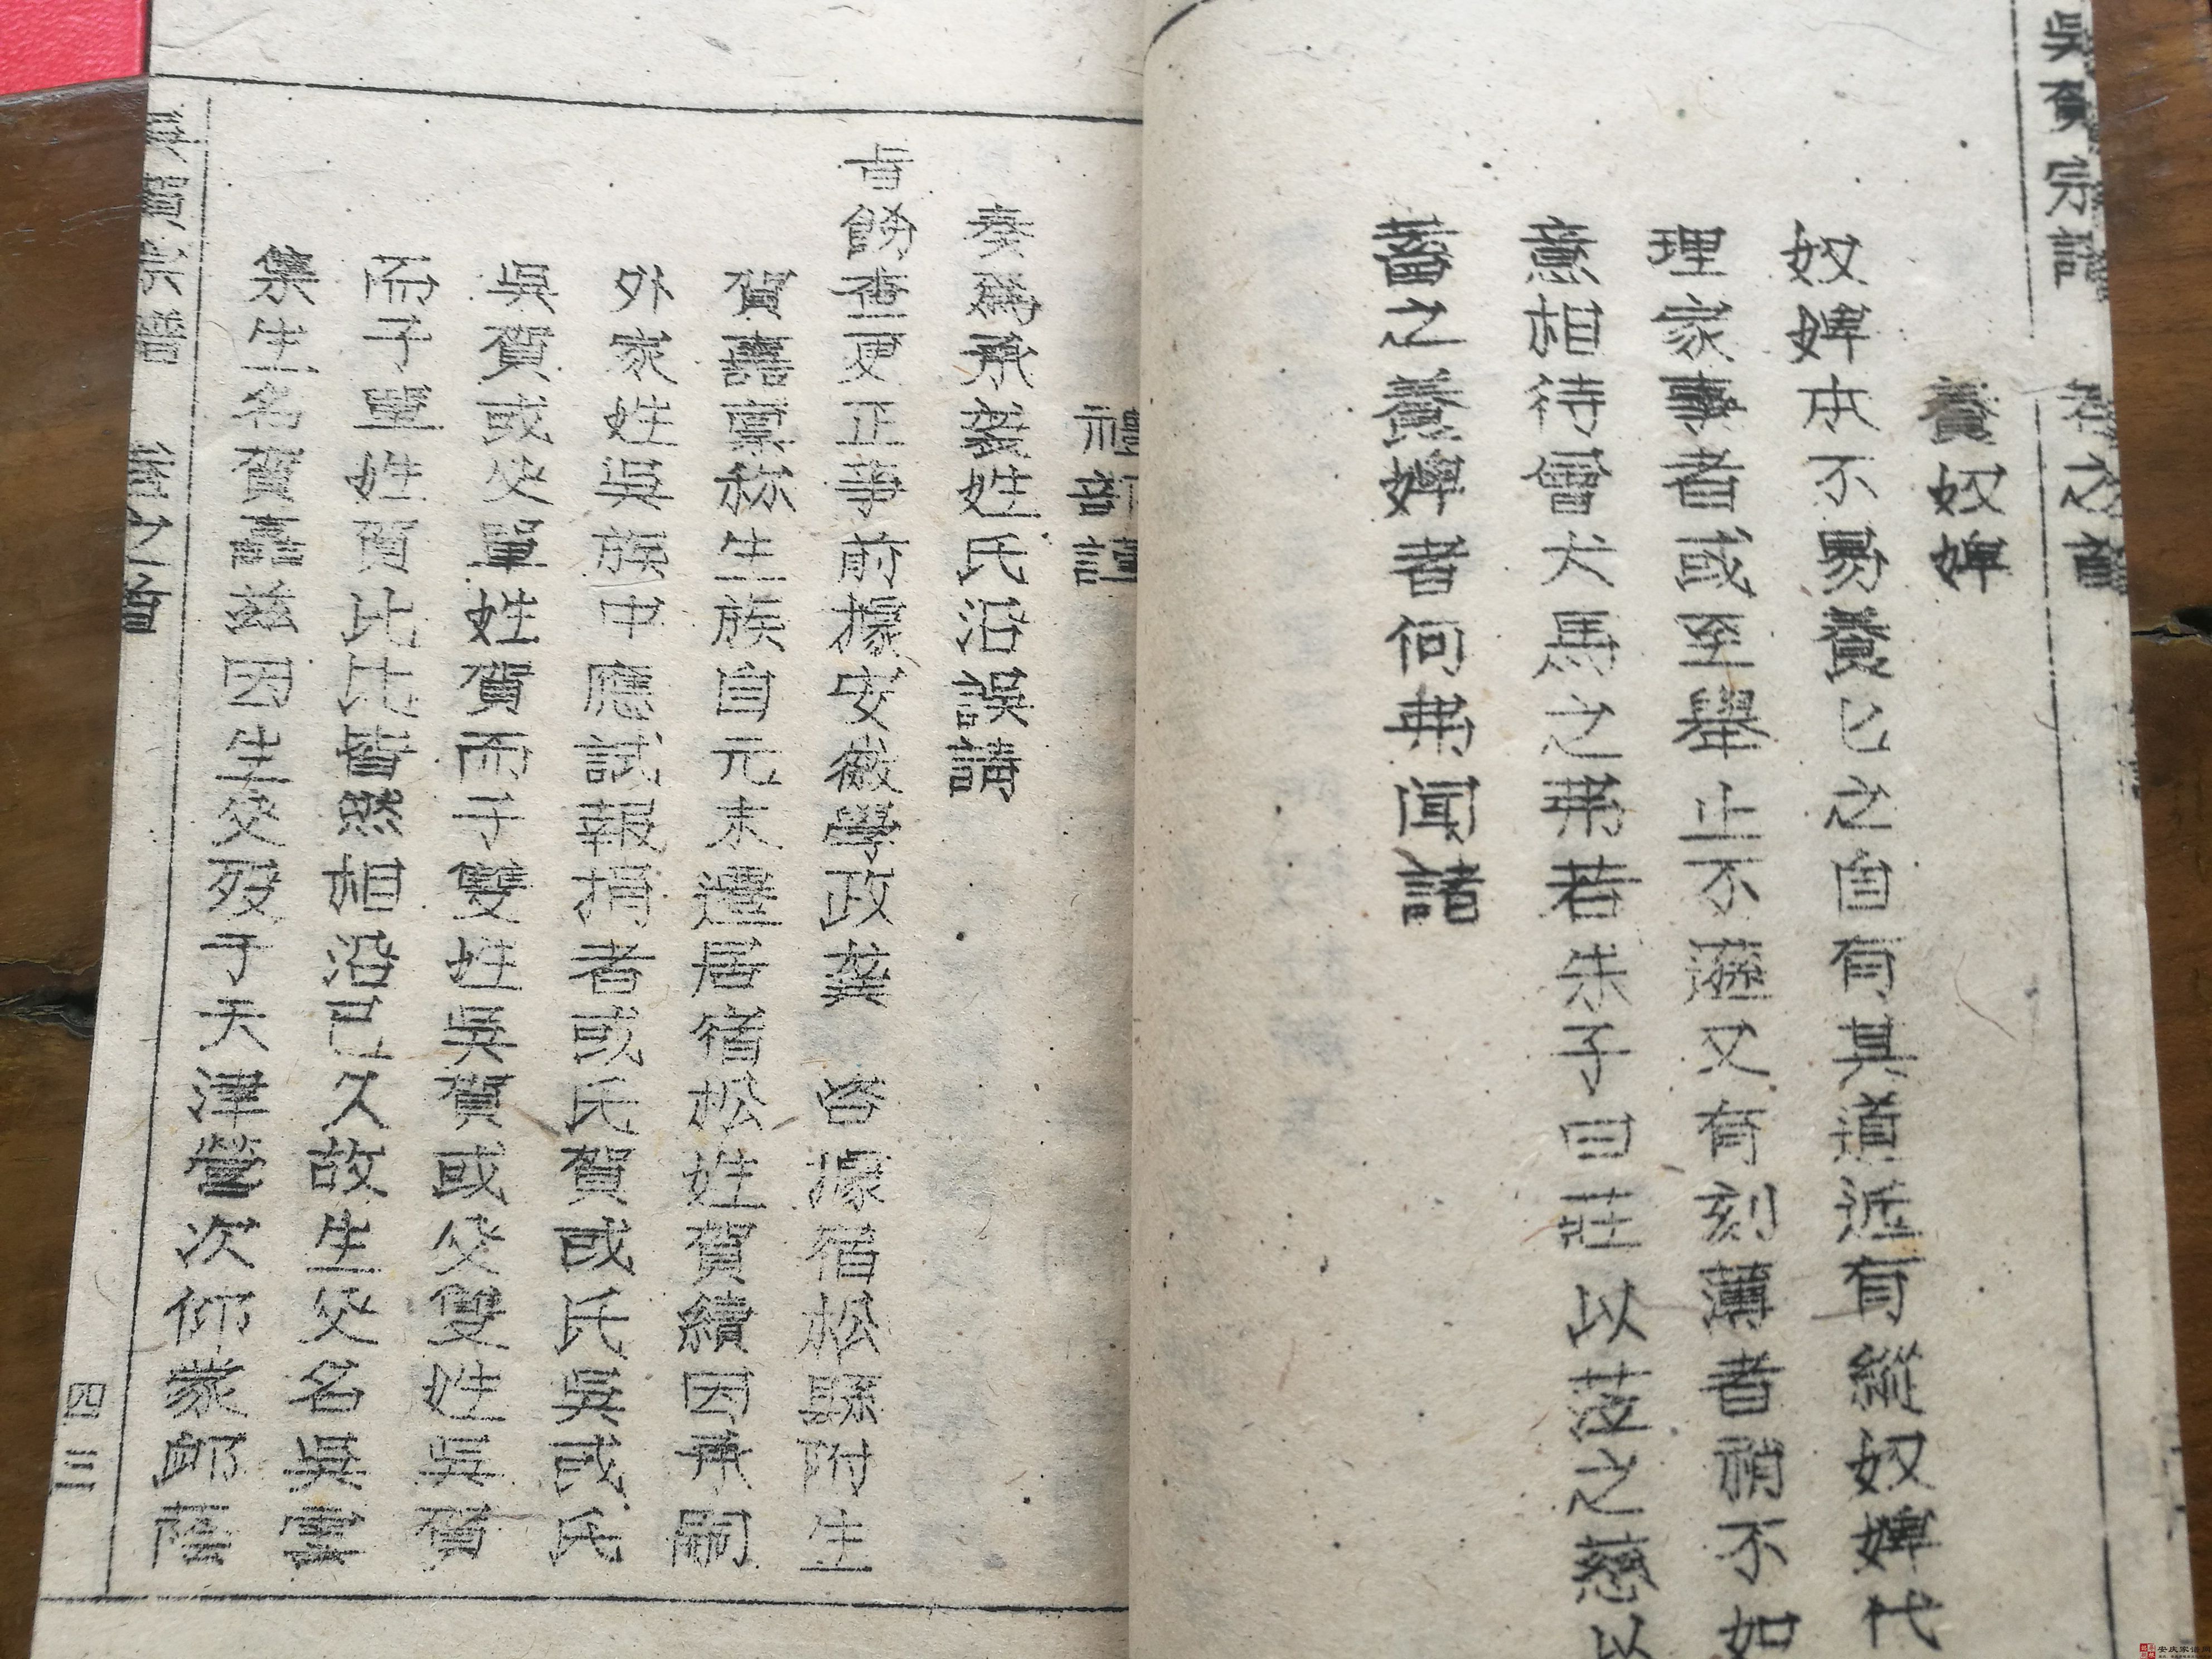 吳賀宗譜
卷之首
養奴婢
奴婢本不易養已之自有其道近有縱奴婢代
理家事者或至舉止不遜又有刻薄者稍不如
意相待曾犬馬之弗若朱子曰莊以莅之慈以
蓄之養婢者何弗闻諸
禮部謹
奏爲承襲姓氏沿誤請
旨飭查更正事前據安徽學政龔 咨據宿松縣附生
賀嚞禀称生族自元末遷居宿松姓賀續因承嗣
外家姓吳族中應試報捐者或氏賀或氏吳或氏
吳賀或父單姓賀而子雙姓吳賀或父雙姓吳賀
而子單姓賀比比皆然相沿已久故生父名吳雲
集生名賀嚞兹因生父歿于天津營次仰蒙䘏蔭
吳賀宗譜
首之首
四三
安庆家谱